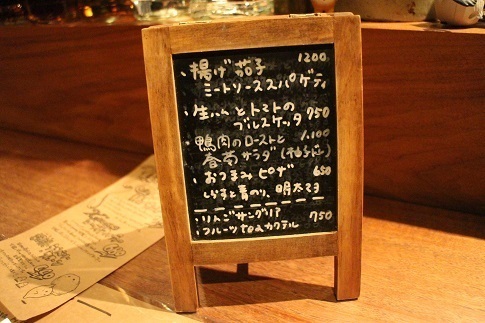 ・揚げ茄子 1200
ミートソーススパゲティ
・生ハムとトマトの
ブルスケッタ 750
・鴨肉のローストと 1.100
春菊サラダ(柚子風)
・おつまみピザ 650
しらすと青のり、明太マヨ
・りんごサングリア 750
・フルーツteaカクテル